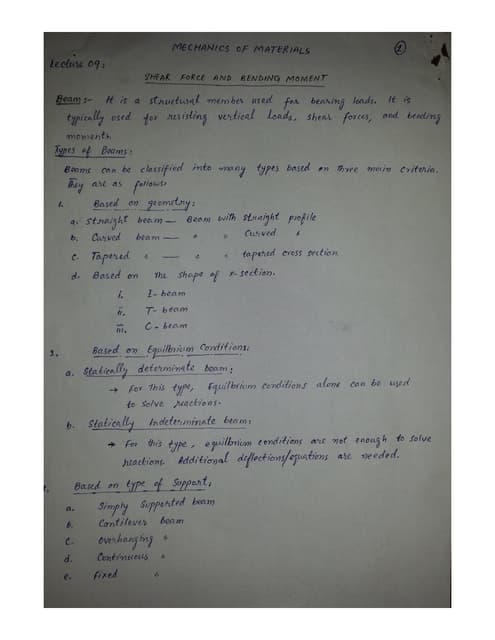 MECHANICS OF MATERIALS
1
Lecture 09:
SHEAR FORCE AND BENDING MOMENT
Beam:- It is a structural member used for bearing loads. It is
typically used for resisting vertical loads, shear forces, and bending
moments.
Types of Beams:
Beams can be classified into many types based on three main criteria.
They are as follows:
1. Based on geometry:
a. Straight beam — Beam with straight profile
b. Curved beam — " " Curved "
c. Tapered " — " " tapered cross section
d. Based on the shape of x-section.
i. I-beam
ii. T-beam
iii. C-beam
3. Based on Equilbrium Conditions:
a. Statically determinate beam:
→ For this type, Equilbrium conditions alone can be used
to solve reactions.
b. Statically Indeterminate beam:
→ For this type, equilbrium conditions are not enough to solve
reactions. Additional deflections/equations are needed.
Based on type of Support:
a. Simply Supported beam
b. Cantilever beam
c. Overhanging "
d. Continuous "
e. Fixed "